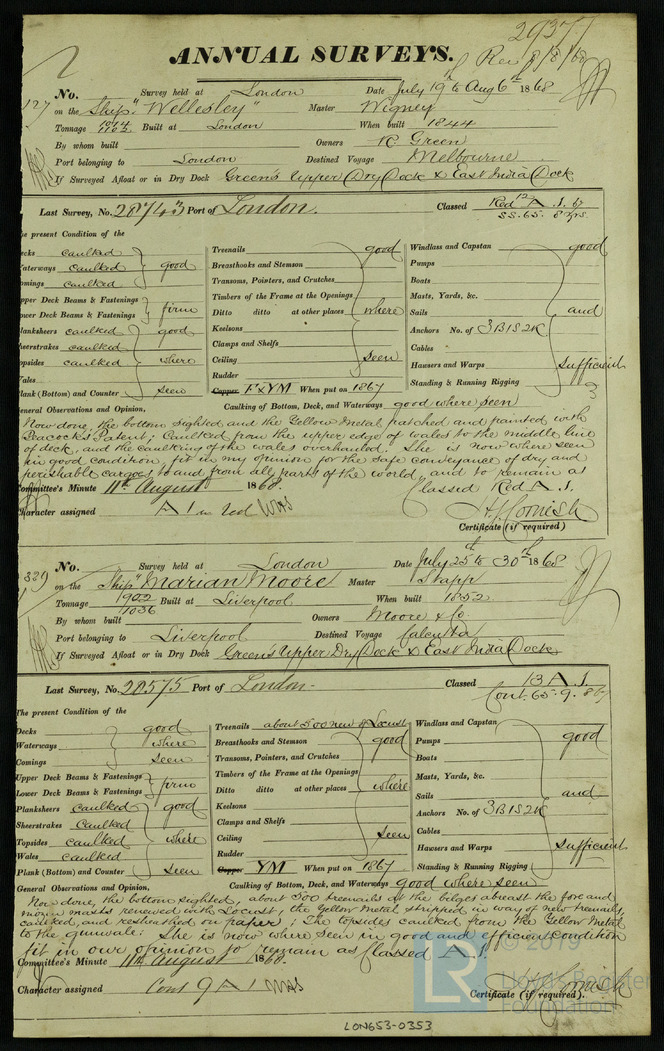 29377
ANNUAL SURVEYS.
Rec 8/8/68
No. Survey held at London Date July 19th to Aug 6th 1868
127 on the Ship "Wellesley" Master Wigney
Tonnage 1014 1103 Built at London When built 1844
By whom built Owners R Green
Port belonging to London Destined Voyage Melbourne
If Surveyed Afloat or in Dry Dock Green's Upper Dry Dock & East India Dock
Last Survey, No. 28743 Port of London. Classed Red A.1.
SS. 65. 8 yrs.
The present Condition of the
Decks caulked Treenails good Windlass and Capstan good
Waterways caulked good Breasthooks and Stemson Pumps
Comings caulked Transoms, Pointers, and Crutches Boats
Upper Deck Beams & Fastenings firm Timbers of the Frame at the Openings Masts, Yards, &c.
Lower Deck Beams & Fastenings Ditto ditto at other places where Sails and
Planksheers caulked good Keelsons Anchors No. of 3B1S2K
Sheerstrakes caulked Clamps and Shelfs Cables
Topsides caulked where Ceiling seen Hawsers and Warps sufficient
Wales Rudder Standing & Running Rigging
Plank (Bottom) and Counter seen Copper FxYM When put on 1867
General Observations and Opinion, Caulking of Bottom, Deck, and Waterways good where seen
Now done, the bottom sighted and the Yellow Metal patched and painted with
Peacocks Patent; Caulked from the upper edge of wales to the middle line
of deck, and the caulking of the wales overhauled. She is now where seen
in good condition, fit in my opinion for the safe conveyance of dry and
perishable cargoes to and from all parts of the world, and to remain as
Classed Red A.1.
Committee's Minute 11th August 1868.
Character assigned A 1 in red
H J Cornish
Certificate (if required)
No. Survey held at London Date July 25th to 30th 1868
329 on the Ship "Marian Moore" Master Shapp
Tonnage 902 1036 Built at Liverpool When built 1852
By whom built Owners Moore & Co.
Port belonging to Liverpool Destined Voyage Calcutta
If Surveyed Afloat or in Dry Dock Green's Upper Dry Dock & East India Dock
Last Survey, No. 28575 Port of London Classed 13 A.1.
Cont. 65. 9. 8/67
The present Condition of the
Decks good Treenails about 500 new of Locust Windlass and Capstan
Waterways where Breasthooks and Stemson good Pumps good
Comings seen Transoms, Pointers, and Crutches Boats
Upper Deck Beams & Fastenings firm Timbers of the Frame at the Openings Masts, Yards, &c.
Lower Deck Beams & Fastenings Ditto ditto at other places where Sails and
Planksheers caulked good Keelsons Anchors No. of 3B1S2K
Sheerstrakes caulked Clamps and Shelfs Cables
Topsides caulked where Ceiling seen Hawsers and Warps sufficient
Wales caulked Rudder Standing & Running Rigging
Plank (Bottom) and Counter seen Copper YM When put on 1867
General Observations and Opinion, Caulking of Bottom, Deck, and Waterways good where seen
Now done, the bottom sighted, about 500 treenails at the bilges abreast the fore and
main masts renewed with Locust, the Yellow Metal stripped in way of new treenails,
caulked, and resheathed on paper; The topsides caulked from the Yellow Metal
to the gunwale: She is now where seen in good and efficient condition
fit in our opinion to remain as Classed A.1.
Committee's Minute 11th August 1868.
Character assigned Cont 9 A 1
H J Cornish
Certificate (if required).
© 2019
LR Lloyd's Register
Foundation
LON653-0353